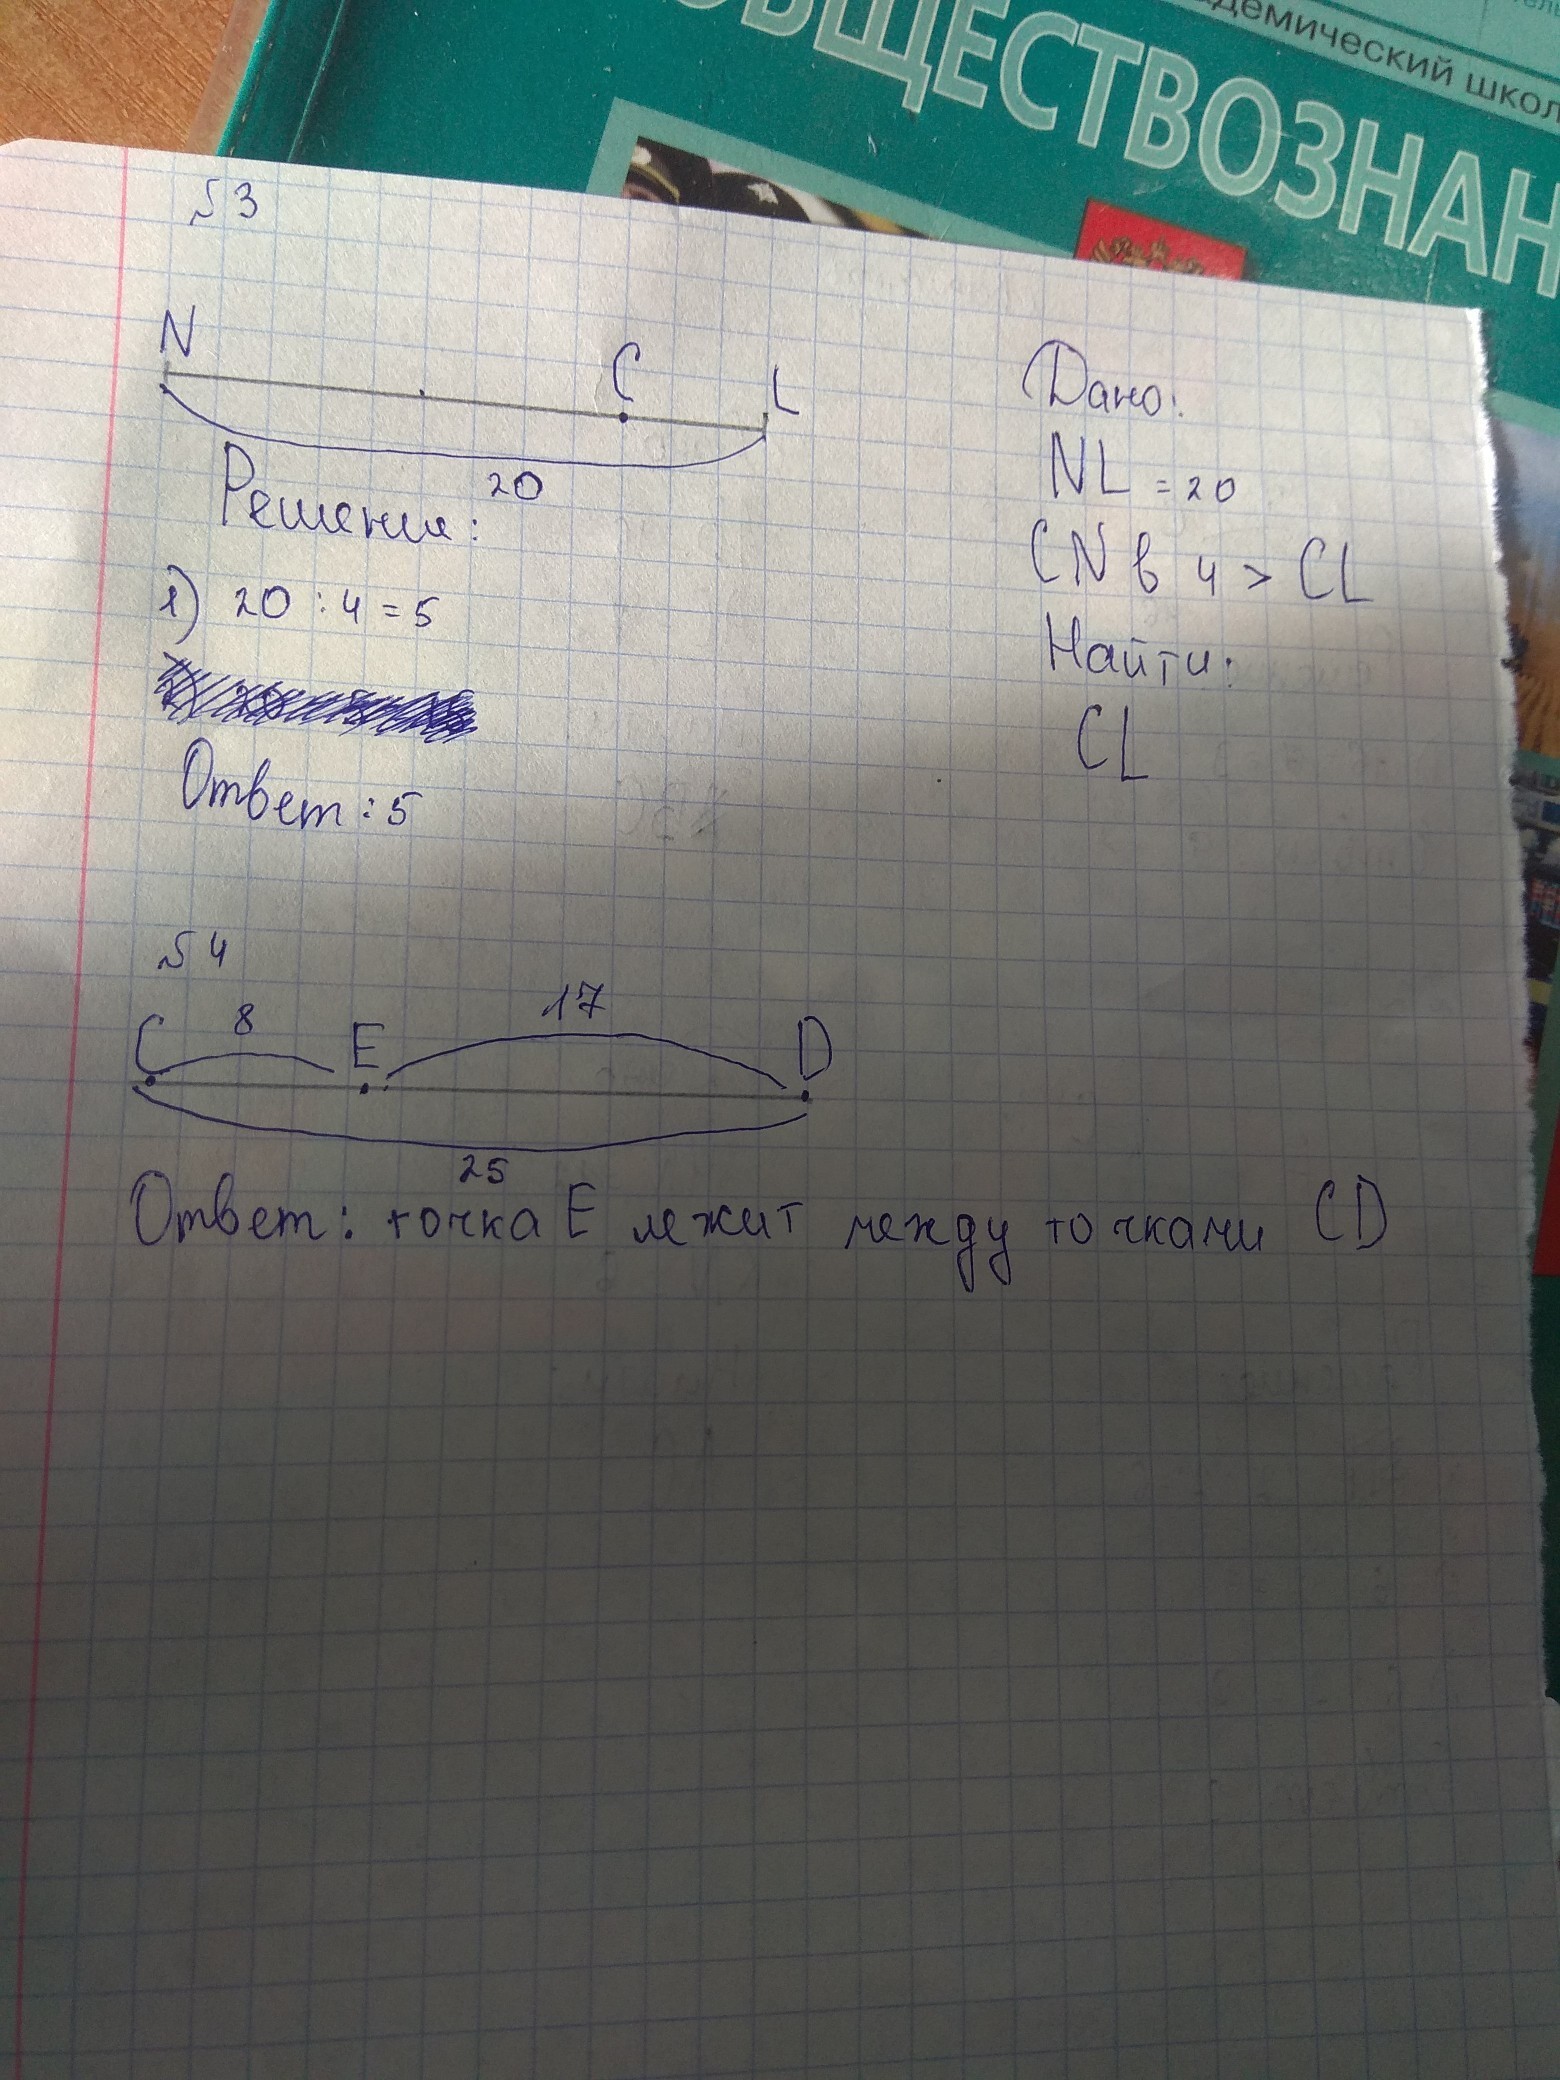 ОБЩЕСТВОЗНАН
адемический школ
№3
N
C
L
20
Дано:
NL = 20
CN в 4 > CL
Найти:
CL
Решение:
1) 20 : 4 = 5
Ответ: 5
№4
C
8
E
17
D
25
Ответ: точка E лежит между точками CD